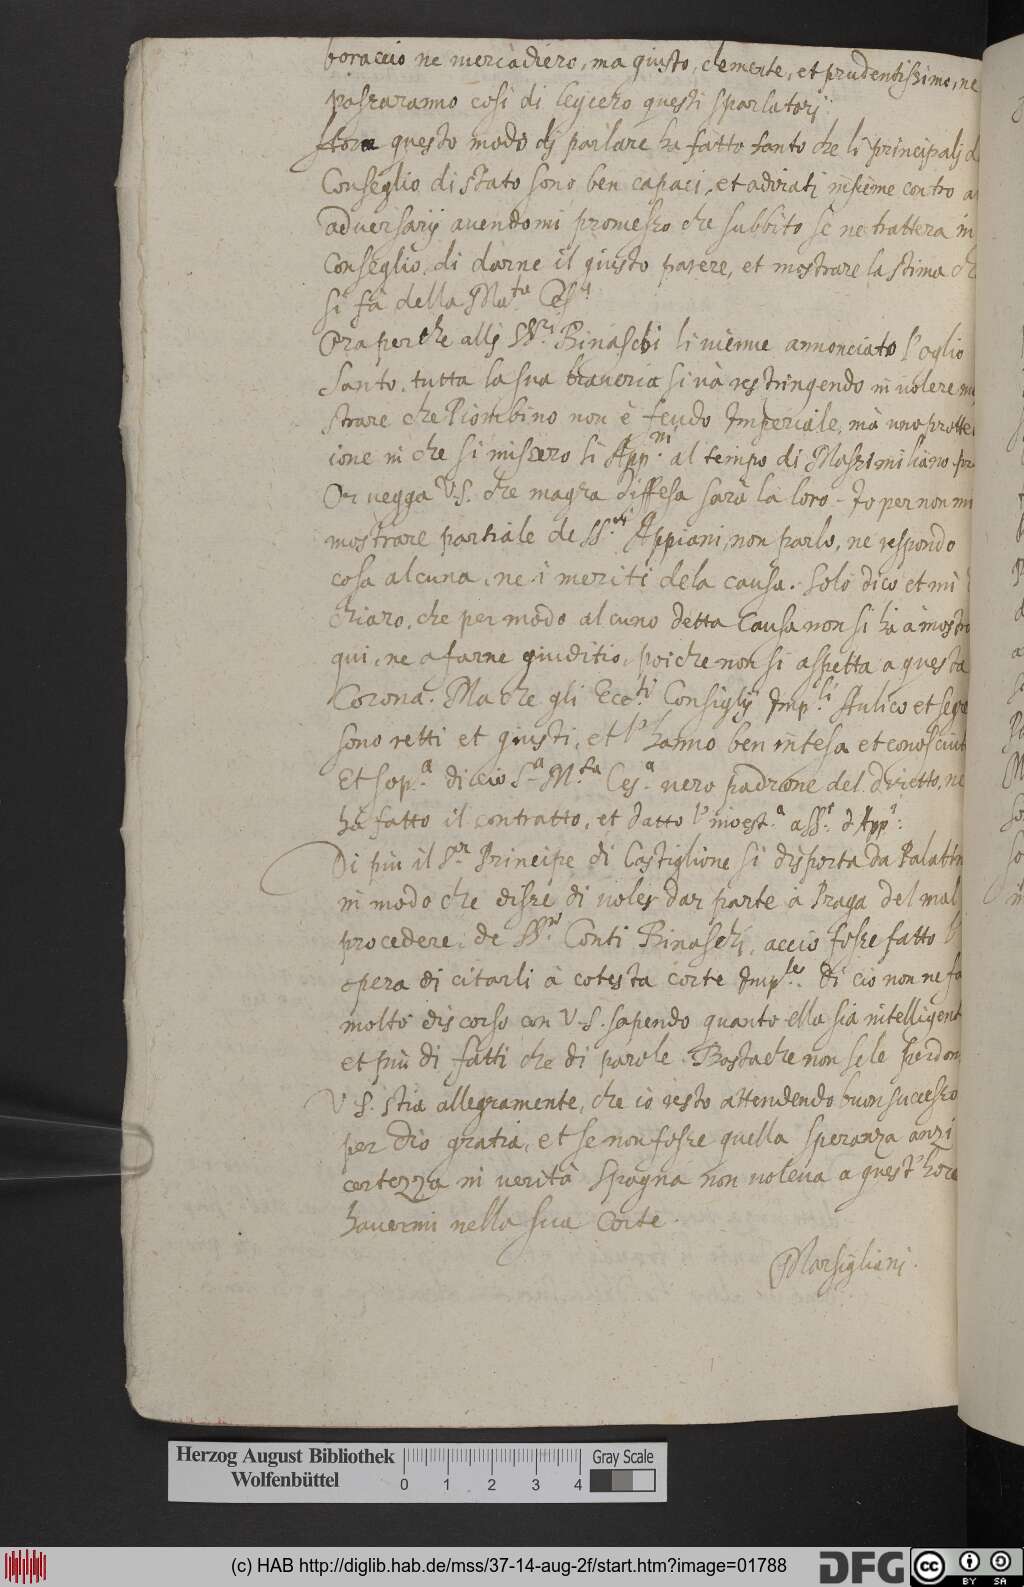 boraccio ne mercadiero, ma giusto, clemente, et prudentissimo, ne
passaranno cosi di legiero questi sparlatorij.
questo modo di parlare ha fatto tanto che li principalj d
Conseglio di stato sono ben capaci, et adirati insieme contro
adversarij avendomi promesso che subbito se ne trattera in
Conseglio, di darne il giusto parere, et mostrare la stima ch
si fà della Ma.ta Ces.a
Ora perche allj SS.ri Binaschi li vienne annonciato l'oglio
Santo, tutta la sua braveria si và restringendo in volere mo
strare che Piombino non è feudo Imperiale, mà uno prottet
ione in che si missero li App.ni al tempo di Massimiliano pr
Or vegga V.S. che magra diffesa sarà la loro. Io per non mi
mostrare partiale de SS.ri Appiani, non parlo, ne respondo
cosa alcuna, ne i meriti dela causa. Solo dico et mi
chiaro, che per modo alcuno detta Causa non si hà à mostra
qui, ne a farne giuditio, poiche non si aspetta a questa
Corona. Ma che gli Ecc.ti Consiglij Imp.li Aulico et segre
sono retti et giusti, et l'hanno ben intesa et conosciut
Et sop.a di cio S.a M.ta Ces.a vero padrone del diretto, ne
hà fatto il contratto, et datto l'invest.a a SS.ri d'App.i
Di più il S.or Principe di Castiglione si disporta da Palatin
in modo che disse di voler dar parte à Praga del mal
procedere de SS.ri Conti Binaschj, accio fosse fatto
opera di citarli à cotesta corte Imp.le. Di cio non ne fa
molto discorso con V.S. sapendo quanto ella sia intelligent
et più di fatti che di parole. Basta che non se le perdon
V.S. stia allegramente, che io resto attendendo buon successo
per Dio gratia, et se non fosse quella speranza anzi
certezza in verità Spagna non voleva a quest'hore
havermi nella sua Corte.
Marsiglianj.
Herzog August Bibliothek
Wolfenbüttel
0 1 2 3 4
Gray Scale
(c) HAB http://diglib.hab.de/mss/37-14-aug-2f/start.htm?image=01788
DFG
cc BY SA